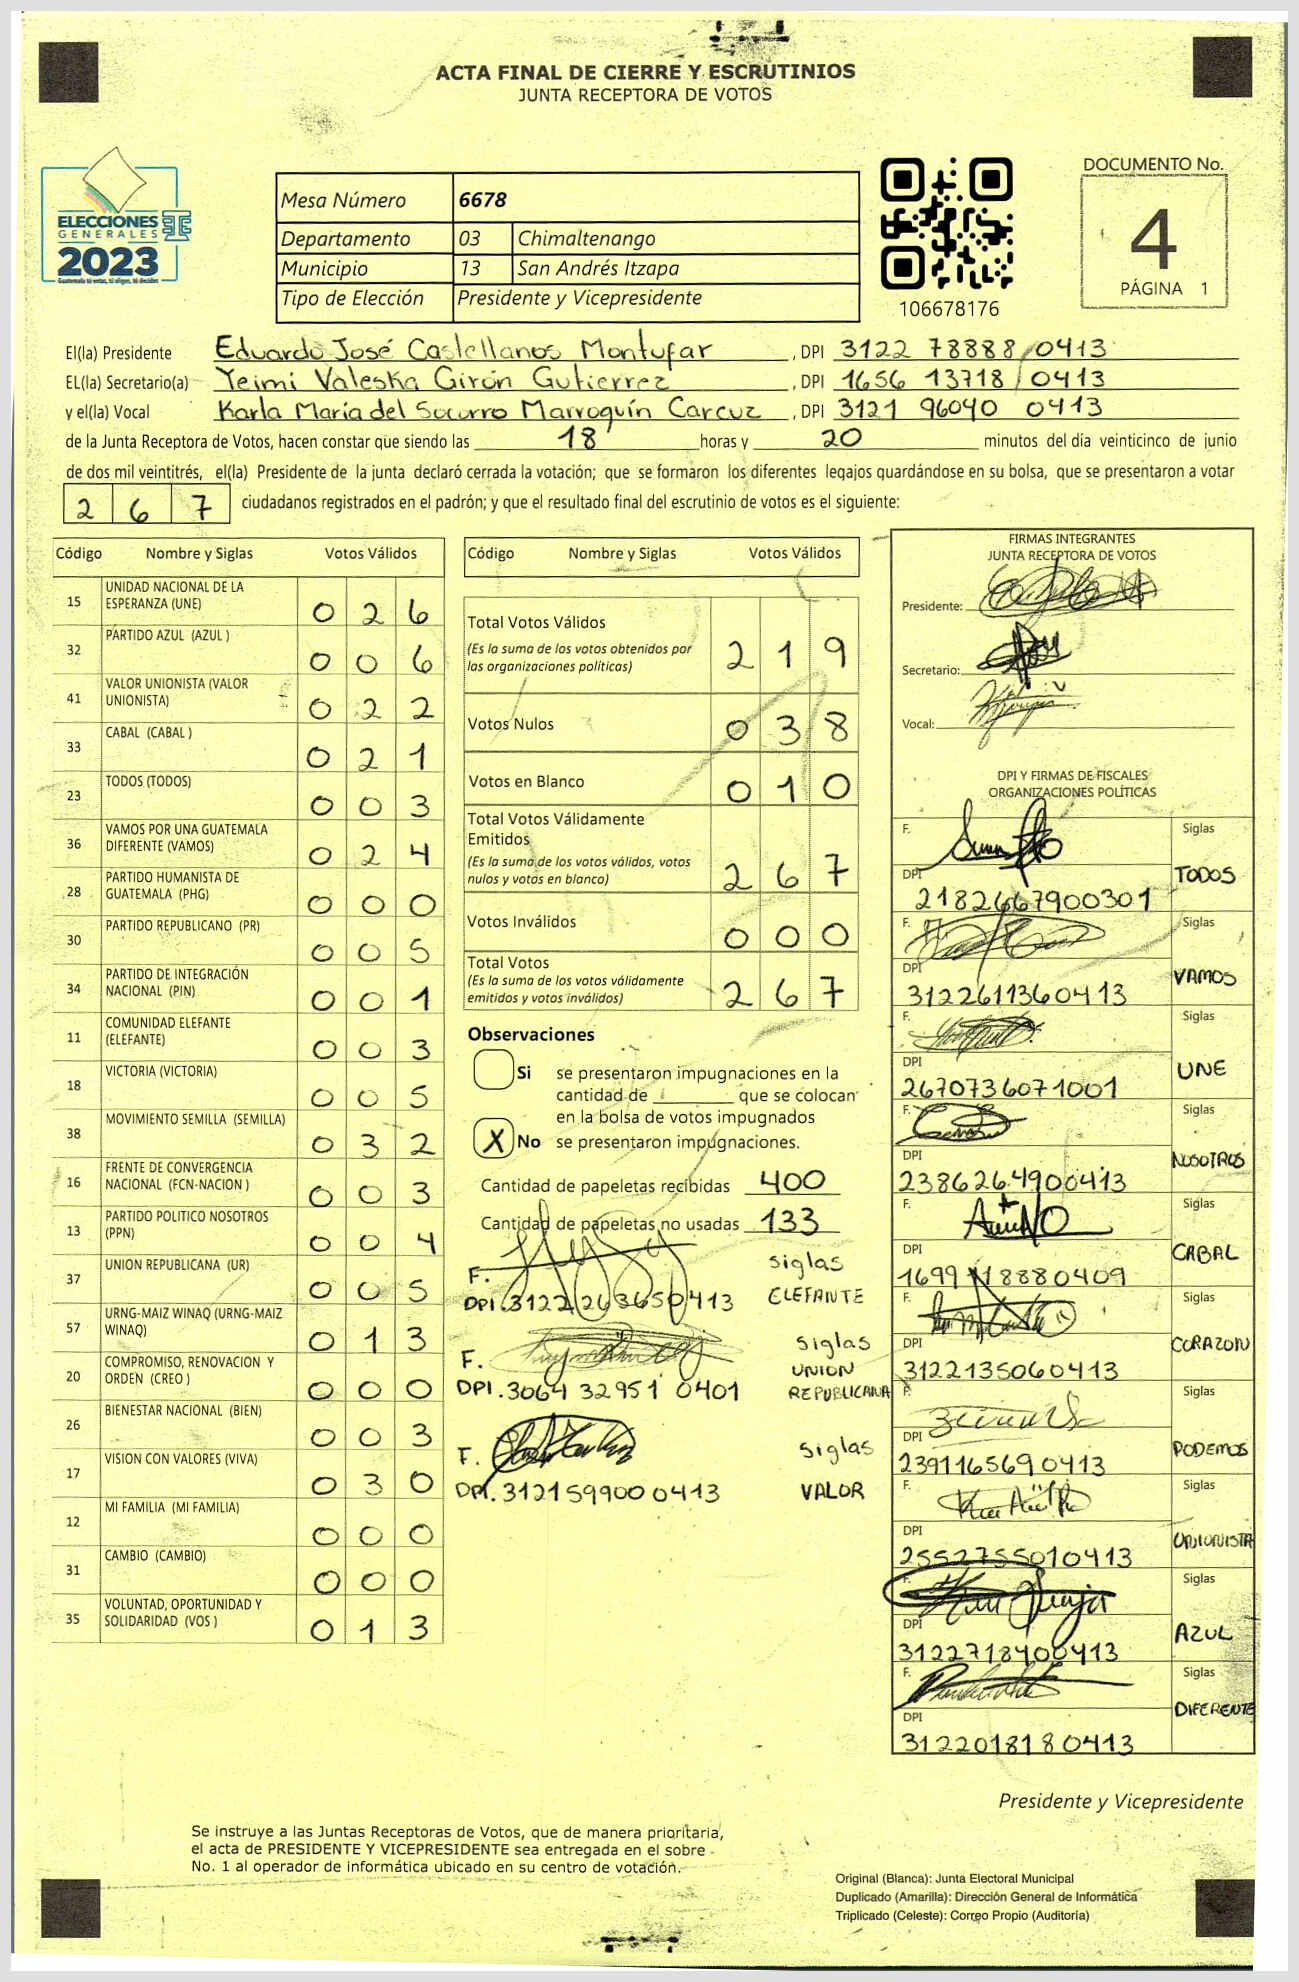 ACTA FINAL DE CIERRE Y ESCRUTINIOS
JUNTA RECEPTORA DE VOTOS
ELECCIONES
GENERALES
2023
Guatemala tú votas, tú eliges, tú decides
Mesa Número 6678
Departamento 03 Chimaltenango
Municipio 13 San Andrés Itzapa
Tipo de Elección Presidente y Vicepresidente
106678176
DOCUMENTO No.
4
PÁGINA 1
El(la) Presidente Eduardo José Castellanos Montufar , DPI 3122 78888 0413
EL(la) Secretario(a) Yeimi Valeska Girón Gutierrez , DPI 1656 13718 0413
y el(la) Vocal Karla María del Socorro Marroquín Carcuz , DPI 3121 96040 0413
de la Junta Receptora de Votos, hacen constar que siendo las 18 horas y 20 minutos del día veinticinco de junio
de dos mil veintitrés, el(la) Presidente de la junta declaró cerrada la votación; que se formaron los diferentes legajos quardándose en su bolsa, que se presentaron a votar
267 ciudadanos registrados en el padrón; y que el resultado final del escrutinio de votos es el siguiente:
Código Nombre y Siglas Votos Válidos
15 UNIDAD NACIONAL DE LA ESPERANZA (UNE) 026
32 PARTIDO AZUL (AZUL ) 006
41 VALOR UNIONISTA (VALOR UNIONISTA) 022
33 CABAL (CABAL ) 021
23 TODOS (TODOS) 003
36 VAMOS POR UNA GUATEMALA DIFERENTE (VAMOS) 024
28 PARTIDO HUMANISTA DE GUATEMALA (PHG) 000
30 PARTIDO REPUBLICANO (PR) 005
34 PARTIDO DE INTEGRACIÓN NACIONAL (PIN) 001
11 COMUNIDAD ELEFANTE (ELEFANTE) 003
18 VICTORIA (VICTORIA) 005
38 MOVIMIENTO SEMILLA (SEMILLA) 032
16 FRENTE DE CONVERGENCIA NACIONAL (FCN-NACION ) 003
13 PARTIDO POLITICO NOSOTROS (PPN) 004
37 UNION REPUBLICANA (UR) 005
57 URNG-MAIZ WINAQ (URNG-MAIZ WINAQ) 013
20 COMPROMISO, RENOVACION Y ORDEN (CREO ) 000
26 BIENESTAR NACIONAL (BIEN) 003
17 VISION CON VALORES (VIVA) 030
12 MI FAMILIA (MI FAMILIA) 000
31 CAMBIO (CAMBIO) 000
35 VOLUNTAD, OPORTUNIDAD Y SOLIDARIDAD (VOS ) 013
Código Nombre y Siglas Votos Válidos
Total Votos Válidos 219
(Es la suma de los votos obtenidos por las organizaciones políticas)
Votos Nulos 038
Votos en Blanco 010
Total Votos Válidamente Emitidos 267
(Es la suma de los votos válidos, votos nulos y votos en blanco)
Votos Inválidos 000
Total Votos 267
(Es la suma de los votos válidamente emitidos y votos inválidos)
Observaciones
Si se presentaron impugnaciones en la
cantidad de que se colocan
en la bolsa de votos impugnados
X No se presentaron impugnaciones.
Cantidad de papeletas recibidas 400
Cantidad de papeletas no usadas 133
F. siglas
DPI.3122263650413 ELEFANTE
F. siglas UNION
DPI.3064 32951 0401 REPUBLICANA
F. siglas
DPI.3121599000413 VALOR
FIRMAS INTEGRANTES
JUNTA RECEPTORA DE VOTOS
Presidente:
Secretario:
Vocal:
DPI Y FIRMAS DE FISCALES
ORGANIZACIONES POLÍTICAS
F. Siglas
DPI 2182667900301 TODOS
F. Siglas
DPI 3122611360413 VAMOS
F. Siglas
DPI 2670736071001 UNE
F. Siglas
DPI 2386264900413 NOSOTROS
F. Siglas
DPI 1699118880409 CABAL
F. Siglas
DPI 3122135060413 CORAZON
F. Siglas
DPI 2391165690413 PODEMOS
F. Siglas
DPI 2552755010413 UNIONISTA
F. Siglas
DPI 3122718400413 AZUL
F. Siglas
DPI 3122018180413 DIFERENTE
Presidente y Vicepresidente
Se instruye a las Juntas Receptoras de Votos, que de manera prioritaria,
el acta de PRESIDENTE Y VICEPRESIDENTE sea entregada en el sobre
No. 1 al operador de informática ubicado en su centro de votación.
Original (Blanca): Junta Electoral Municipal
Duplicado (Amarilla): Dirección General de Informática
Triplicado (Celeste): Correo Propio (Auditoría)